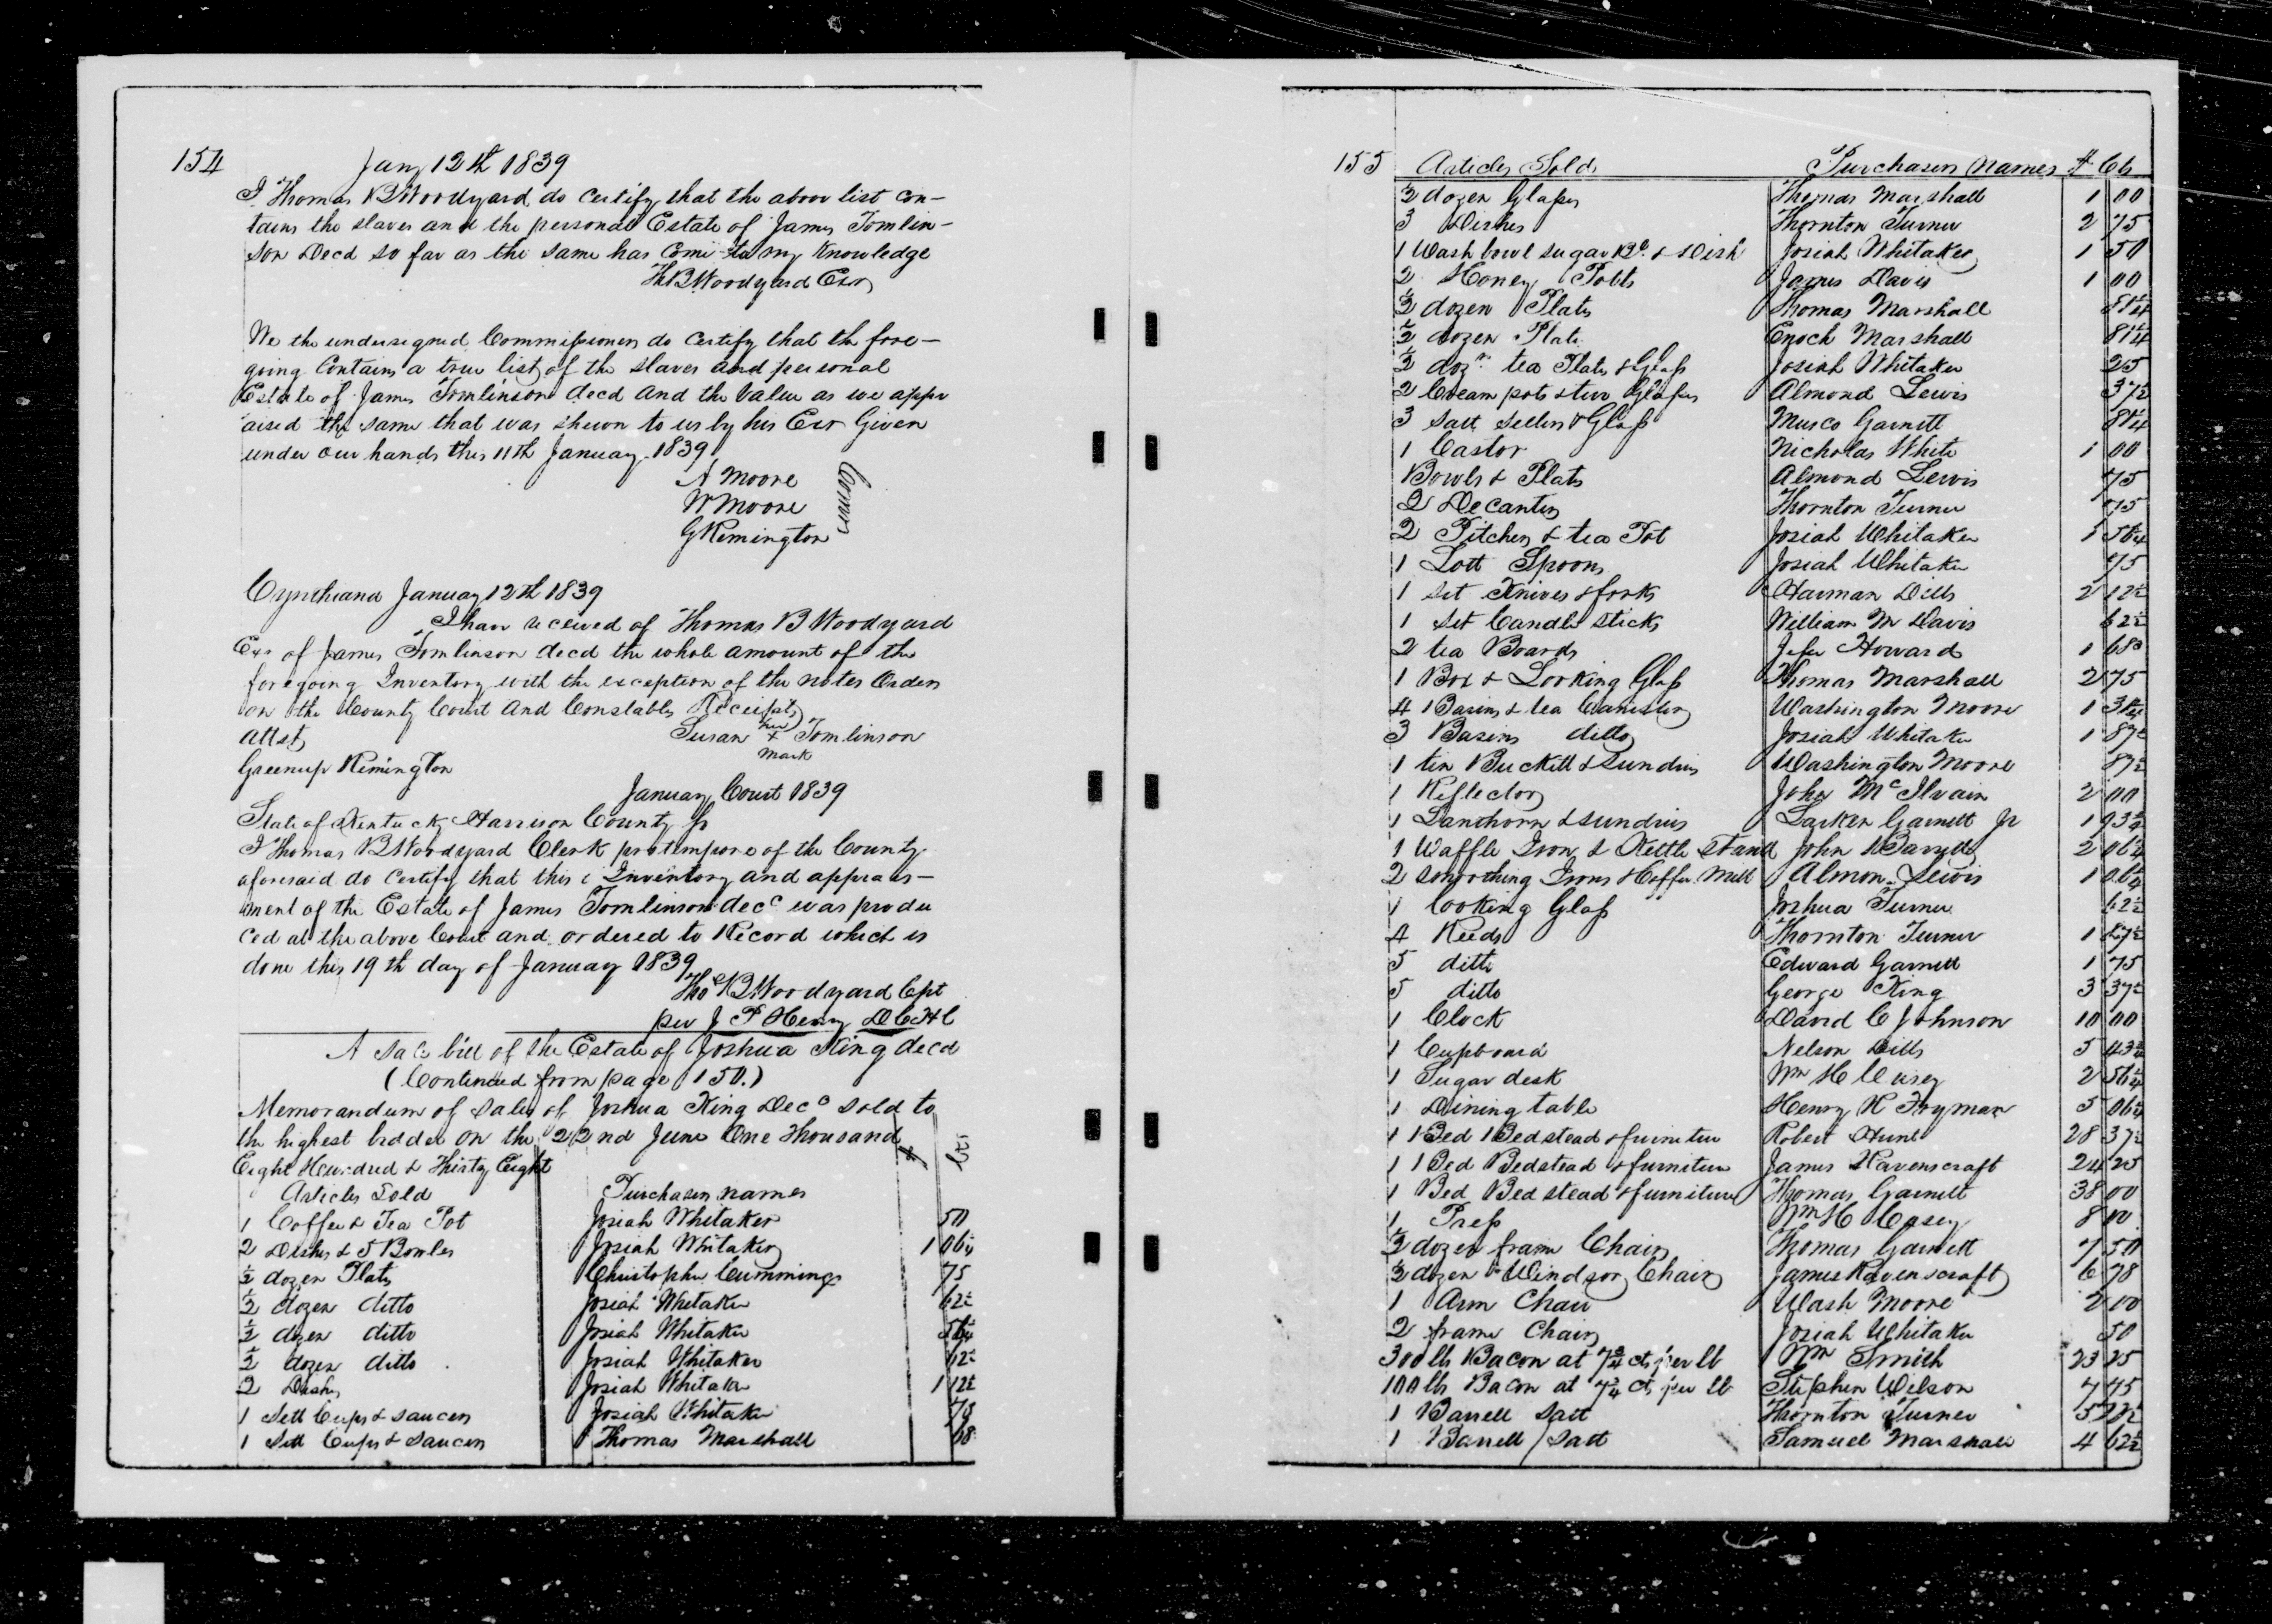 154
Jany 12th 1839
I Thomas B Woodyard do Certify that the above list con-
tains the slaves and the personal Estate of James Tomlin-
son Decd so far as the same has Come to my knowledge
Th B Woodyard Exr
We the undersigned Commissioners do Certify that the fore-
going Contains a true list of the slaves and personal
Estate of James Tomlinson decd and the Value as we appr
aised the same that was shewn to us by his Exr Given
under our hands this 11th January 1839
A Moore
W Moore
G Remington
Comrs
Cynthiana January 12th 1839
I have received of Thomas B Woodyard
Exr of James Tomlinson decd the whole amount of the
foregoing Inventory with the exception of the notes Orders
on the County Court and Constables Receipts
Attest
Susan her + Tomlinson
mark
Greenup Remington
January Court 1839
State of Kentucky Harrison County ss
I Thomas B Woodyard Clerk protempore of the County
aforesaid do Certify that this Inventory and appraes-
ment of the Estate of James Tomlinson decd was produ
ced at the above Court and ordered to Record which is
done this 19th day of January 1839
Thos B Woodyard Cpt
per J P Henry DCHC
A Sale bill of the Estate of Joshua King decd
(Continued from page 150.)
Memorandum of Sales of Joshua King Decd sold to
the highest bidder on the 22nd June One Thousand
Eight Hundred & Thirty Eight $ Cts
Articles Sold Purchasers names
1 Coffee & Tea Pot Josiah Whitaker 50
2 Dishes & 5 Bowles Josiah Whitaker 1 06¼
½ dozen Plates Christopher Cummings 75
½ dozen ditto Josiah Whitaker 62½
½ dozen ditto Josiah Whitaker 56¼
½ dozen ditto Josiah Whitaker 62½
2 Dishes Josiah Whitaker 1 12½
1 Sett Cups & saucers Josiah Whitaker 75
1 Sett Cups & Saucers Thomas Marshall 68
155 Articles Sold Purchasers Names $ Cts
½ dozen Glasses Thomas Marshall 1 00
3 Dishes Thornton Turner 2 75
1 Wash bowl sugar Bl & Dish Josiah Whitaker 1 50
2 Honey Potts James Davis 1 00
½ dozen Plates Thomas Marshall 81¼
½ dozen Plate Enoch Marshall 81¼
½ dozn tea Plates & Glass Josiah Whitaker 25
2 Cream pots & two Glasses Almond Lewis 37½
3 Salt Sellers & Glass Musco Garnett 81¼
1 Castor Nicholas White 1 00
Bowls & Plates Almond Lewis 75
2 Decanters Thornton Turner 75
2 Pitchers & tea Pot Josiah Whitaker 1 56¼
1 Lott Spoons Josiah Whitaker 75
1 Set Knives & forks Harman Dills 2 12½
1 Set Candle Sticks William M Davis 62½
2 tea Boards Howard 1 68
1 Box & Looking Glass Thomas Marshall 2 75
4 Basins & tea Canisters Washington Moore 1 31¼
3 Basins ditto Josiah Whitaker 1 87½
1 tin Buckett & Sundries Washington Moore 87½
1 Reflector John McIlvain 2 00
1 Lanthorn & sundries Larken Garnett Jr 1 93¾
1 Waffle Iron & Kettle Stand John 2 06¼
2 Smoothing Irons & Coffee Mill Almon Lewis 1 06¼
1 looking Glass Joshua Turner 62½
4 Reeds Thornton Turner 1 87½
5 ditto Edward Garnett 1 75
5 ditto George King 3 37½
1 Clock David C Johnson 10 00
1 Cupboard Nelson Dills 5 43¾
1 Sugar desk Wm H Casey 2 56¼
1 Dining table Henry H Fryman 5 06¼
1 1 Bed 1 Bedstead & furniture Robert Hunt 28 37½
1 1 Bed Bedstead & furniture James Ravenscraft 24 25
1 Bed Bedstead & furniture Thomas Garnett 38 00
1 Press Wm H Casey 8 00
½ dozen frame Chairs Thomas Garnett 7 50
½ dozen Windsor Chairs James Ravenscraft 6 78
1 Arm Chair Wash Moore 2 00
2 frame Chairs Josiah Whitaker 50
300 lbs Bacon at 7¾ cts per lb Wm Smith 23 25
100 lbs Bacon at 7¾ cts per lb Stephen Wilson 7 75
1 Barrell Salt Thornton Turner 5
1 Barrell Salt Samuel Marshall 4 62½